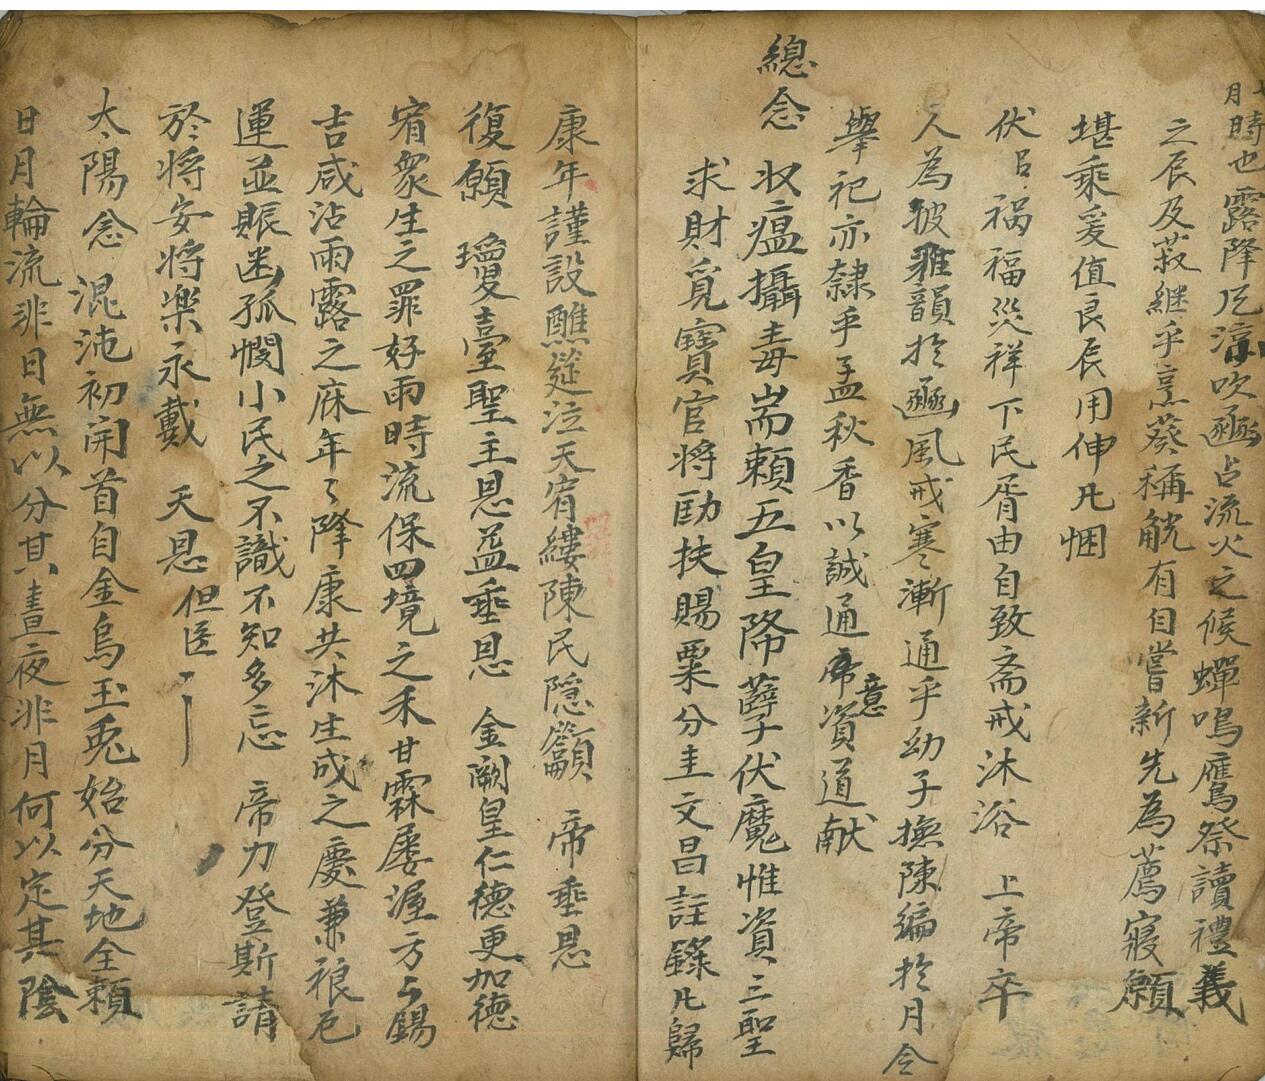 月時也露降风凉吹豳占流火之候蟬鳴鷹祭讀禮義
之辰及菽継乎烹葵稱觥有自嘗新先為薦寢願
堪乘爰值良辰用伸凡悃
伏以禍福災祥下民胥由自致斎戒沐浴 上帝卒
人為披雅韻扵豳風戒寒漸通乎幼子撫陳編扵月令
舉祀亦隸乎孟秋香以誠通帝意資道献
總念 収瘟攝毒耑頼五皇降孽伏魔惟資三聖
求財覓寶官将助扶賜粟分圭文昌註錄凡歸
康年謹設醮筵泣天宥縷陳民隠籲 帝垂恩
復願 瓊臺聖主恩益垂恩 金闕皇仁德更加德
宥衆生之罪好雨時流保四境之禾甘霖屡渥方々錫
吉咸沾雨露之庥年々降康共沐生成之慶兼祓厄
運並賑幽孤憫小民之不識不知多忘 帝力登斯請
於将安将樂永戴 天恩但医
太陽念 混沌初開首自金烏玉兎始分天地全頼
日月輪流非日無以分其晝夜非月何以定其陰